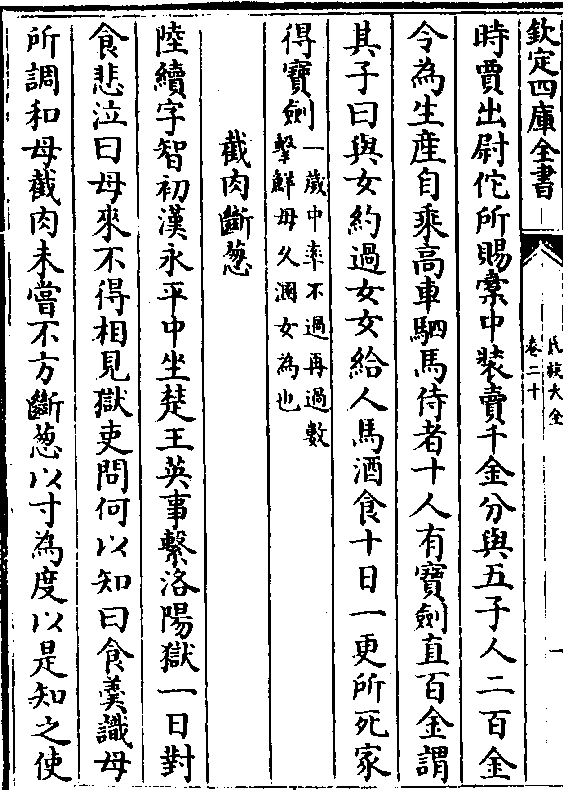 欽定四庫全書
氏族大全
卷二十
一
時賈出尉佗所賜橐中裝賣千金分與五子人二百金
令為生產自乘高車駟馬侍者十人有寶劍直百金謂
其子曰與女約過女女給人馬酒食十日一更所死家
得寶劍一歲中率不過再過數
擊鮮毋久溷女為也
截肉斷葱
陸續字智初漢永平中坐楚王英事繫洛陽獄一日對
食悲泣曰母來不得相見獄吏問何以知曰食羮識母
所調和母截肉未嘗不方斷葱以寸為度以是知之使